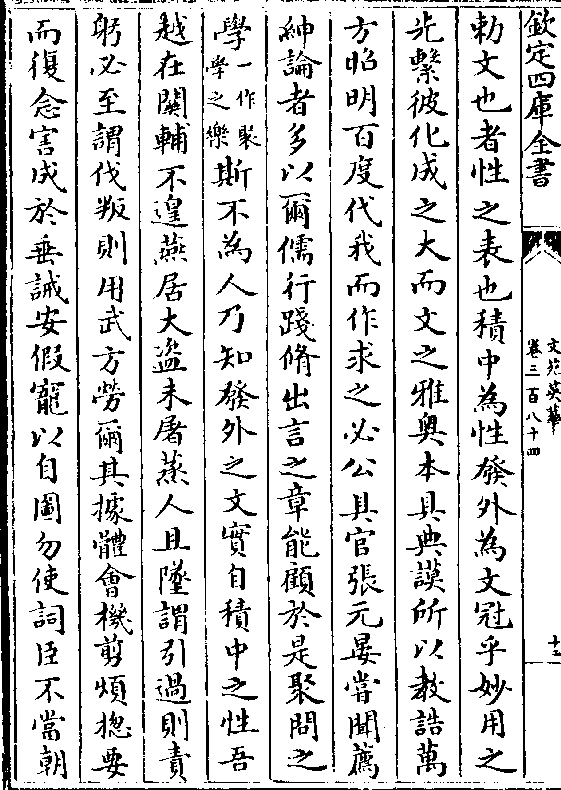 欽定四庫全書
文苑英華
卷三百八十四
十三
勅文也者性之表也積中為性發外為文冠乎妙用之
先繫彼化成之大而文之雅奥本具典謨所以教誥萬
方昭明百度代我而作求之必公具官張元晏嘗聞薦
紳論者多以爾儒行踐脩出言之章能顧於是聚問之
學一作聚學之樂斯不為人乃知發外之文實自積中之性吾
越在關輔不遑燕居大盜未屠蒸人且墜謂引過則責
躬必至謂伐叛則用武方勞爾其據體會機剪煩摠要
而復念害成於垂誡安假寵以自圖勿使詞臣不當朝